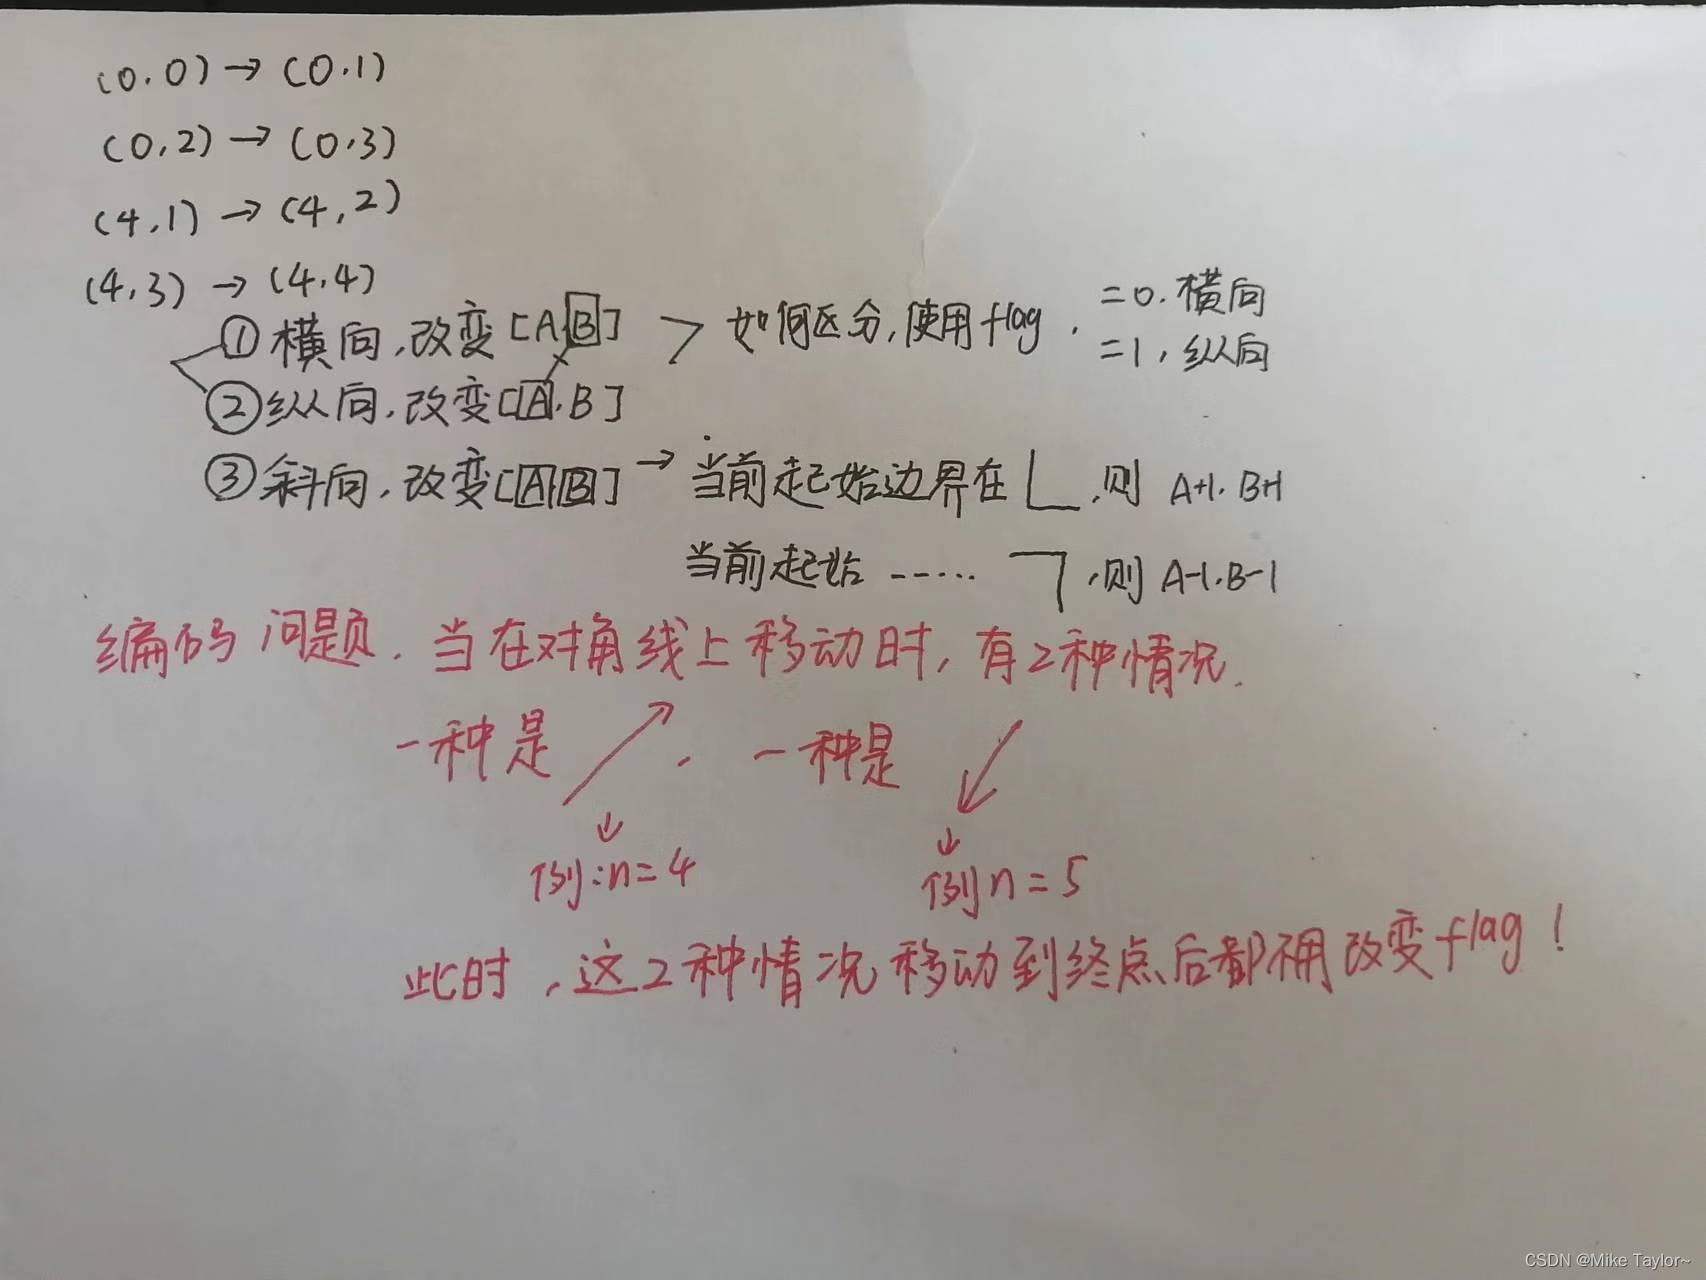 (0,0)→(0,1)
(0,2)→(0,3)
(4,1)→(4,2)
(4,3)→(4,4)
①横向,改变[A,B] > 如何区分,使用flag, =0.横向
=1,纵向
②纵向,改变[A,B]
③斜向,改变[A,B]→当前起始边界在∟,则 A+1.B+1
当前起始……﹁,则 A-1.B-1
编码问题.当在对角线上移动时,有2种情况.
一种是↗,一种是↙
↓ ↓
例:n=4 例n=5
此时,这2种情况移动到终点后都不用改变flag!
CSDN @Mike Taylor~